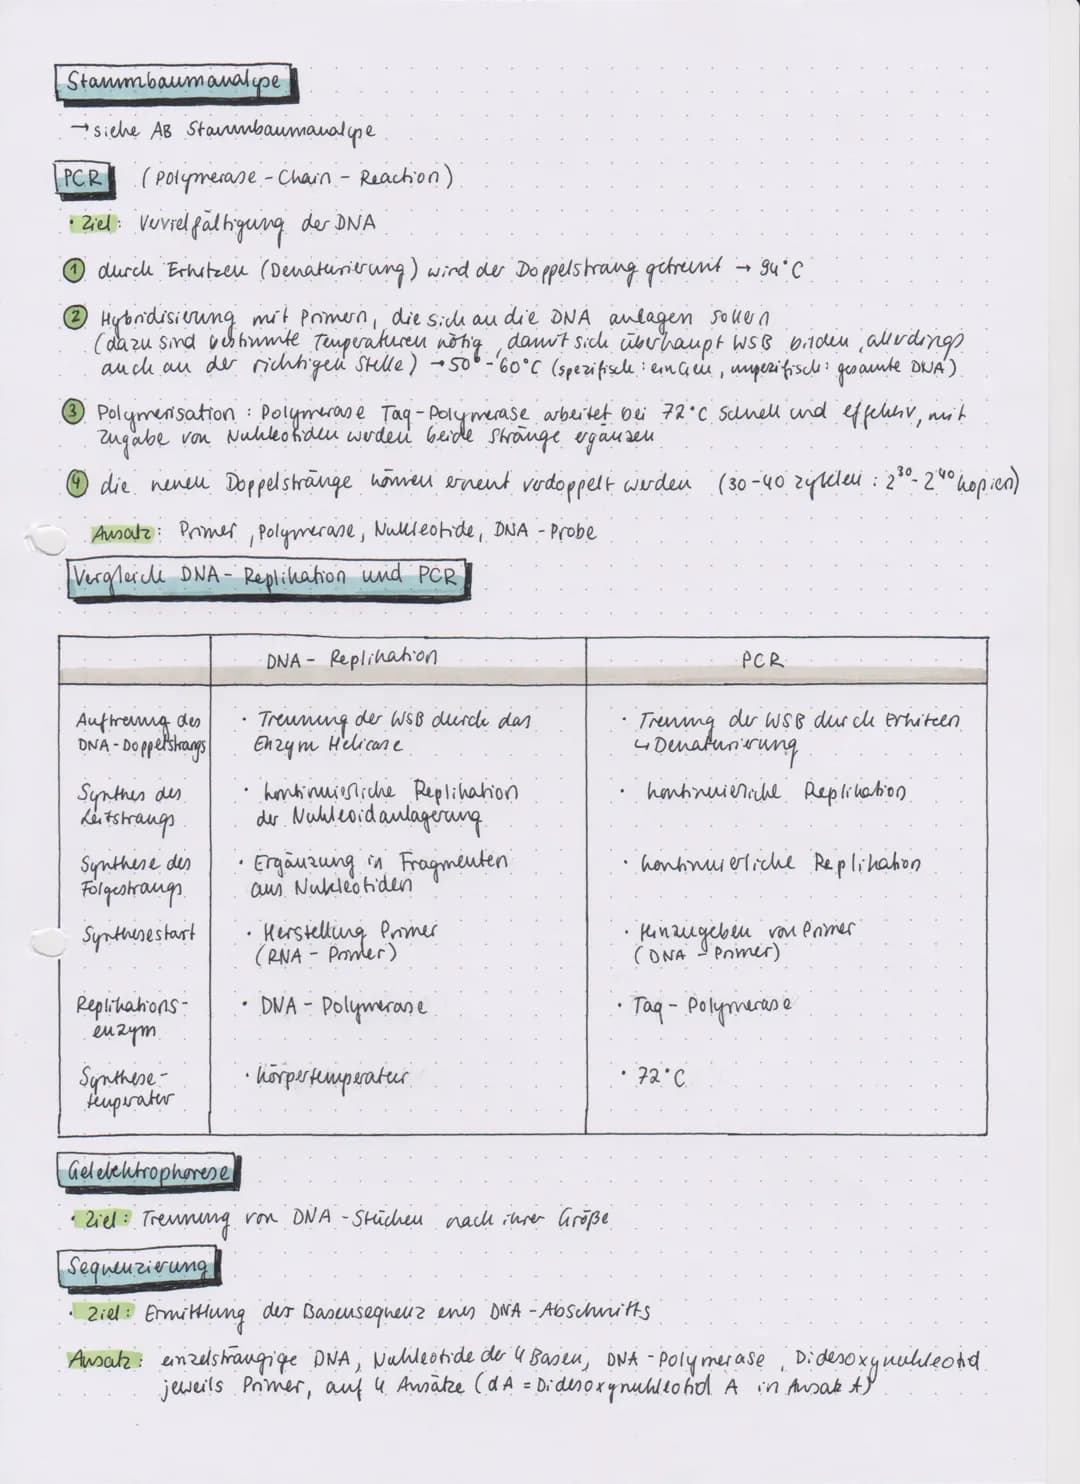 Stammbaumanalyse
→ siehe AB Stammbaumanalyse
PCR (Polymerase-Chain-Reaction)
• Ziel: Vervielfältigung der DNA
① durch Erhitzen (Denaturierung) wird der Doppelstrang getrennt → 94°C
② Hybridisierung mit Primern, die sich an die DNA anlagen sollen
(dazu sind bestimmte Temperaturen nötig, damit sich überhaupt WSB bilden, allerdings
auch an der richtigen Stelle) → 50°-60°C (spezifisch: ein Gen, unspezifisch: gesamte DNA)
③ Polymerisation: Polymerase Taq-Polymerase arbeitet bei 72°C schnell und effektiv, mit
Zugabe von Nukleotiden werden beide Stränge ergänzen
④ die neuen Doppelstränge können erneut verdoppelt werden (30-40 Zyklen: 2³⁰-2⁴⁰ Kopien)
Ansatz: Primer, Polymerase, Nukleotide, DNA-Probe
Vergleich DNA-Replikation und PCR
DNA-Replikation PCR
Auftrennung des • Trennung der WSB durch das • Trennung der WSB durch Erhitzen
DNA-Doppelstrangs Enzym Helicase ↳ Denaturierung
Synthes des • kontinuierliche Replikation • kontinuierliche Replikation
Leitstrangs der Nukleoidanlagerung
Synthese des • Ergänzung in Fragmenten • kontinuierliche Replikation
Folgestrangs aus Nukleotiden
Synthesestart • Herstellung Primer • Hinzugeben von Primer
(RNA-Primer) (DNA-Primer)
Replikations- • DNA-Polymerase • Taq-Polymerase
enzym
Synthese- • Körpertemperatur • 72°C
temperatur
Gelelektrophorese
• Ziel: Trennung von DNA-Stücken nach ihrer Größe
Sequenzierung
• Ziel: Ermittlung der Basensequenz enes DNA-Abschnitts
Ansatz: einzelsträngige DNA, Nukleotide der 4 Basen, DNA-Polymerase, Didesoxynukleotid
jeweils Primer, auf 4 Ansätze (dA = Didesoxynukleotid A in Ansatz A)